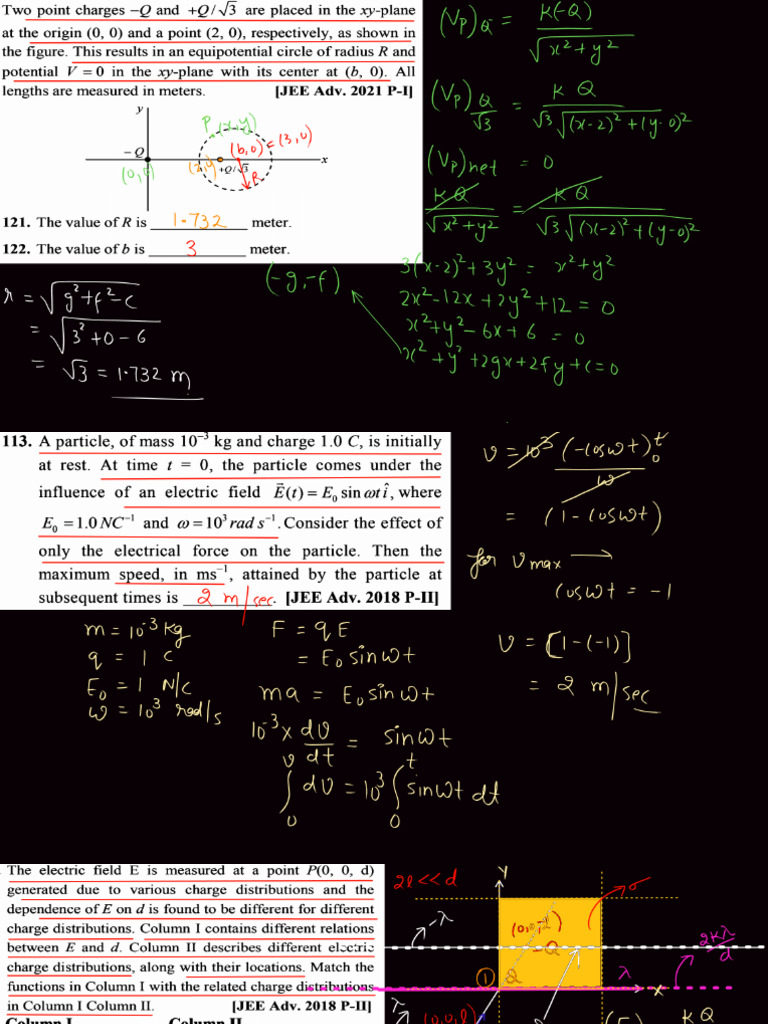 Two point charges −Q and +Q/√3 are placed in the xy-plane
at the origin (0, 0) and a point (2, 0), respectively, as shown in
the figure. This results in an equipotential circle of radius R and
potential V = 0 in the xy-plane with its center at (b, 0). All
lengths are measured in meters. [JEE Adv. 2021 P-I]
y
P(x,y)
−Q
(b,0) = (3,0)
x
(0,0)
+Q/√3
R
121. The value of R is 1.732 meter.
122. The value of b is 3 meter.
(Vp)Q = K(-Q) / √(x²+y²)
(Vp)Q/√3 = KQ / √3 √((x-2)²+(y-0)²)
(Vp)net = 0
KQ / √(x²+y²) = KQ / √3 √((x-2)²+(y-0)²)
3(x-2)²+3y² = x²+y²
2x²-12x+2y²+12 = 0
x²+y²-6x+6 = 0
x²+y²+2gx+2fy+c=0
(-g,-f)
r = √(g²+f²-c)
= √(3²+0-6)
= √3 = 1.732 m
113. A particle, of mass 10⁻³ kg and charge 1.0 C, is initially
at rest. At time t = 0, the particle comes under the
influence of an electric field E⃗(t) = E₀ sin ωt î, where
E₀ = 1.0 NC⁻¹ and ω = 10³ rad s⁻¹. Consider the effect of
only the electrical force on the particle. Then the
maximum speed, in ms⁻¹, attained by the particle at
subsequent times is 2 m/sec. [JEE Adv. 2018 P-II]
m = 10⁻³ kg
q = 1 C
E₀ = 1 N/C
ω = 10³ rad/s
F = qE
= E₀ sinωt
ma = E₀ sinωt
10⁻³ x dv/dt = sinωt
∫₀ᵛ dv = 10³ ∫₀ᵗ sinωt dt
v = 10³ (-cosωt)₀ᵗ / ω
= (1-cosωt)
for vmax →
cosωt = -1
v = [1-(-1)]
= 2 m/sec
The electric field E is measured at a point P(0, 0, d)
generated due to various charge distributions and the
dependence of E on d is found to be different for different
charge distributions. Column I contains different relations
between E and d. Column II describes different electric
charge distributions, along with their locations. Match the
functions in Column I with the related charge distributions
in Column I Column II. [JEE Adv. 2018 P-II]
Column I Column II
2l << d
y
σ
-λ
-Q
2Kλ/d
① Q
λ
x
λ
(0,0,l)
KQ